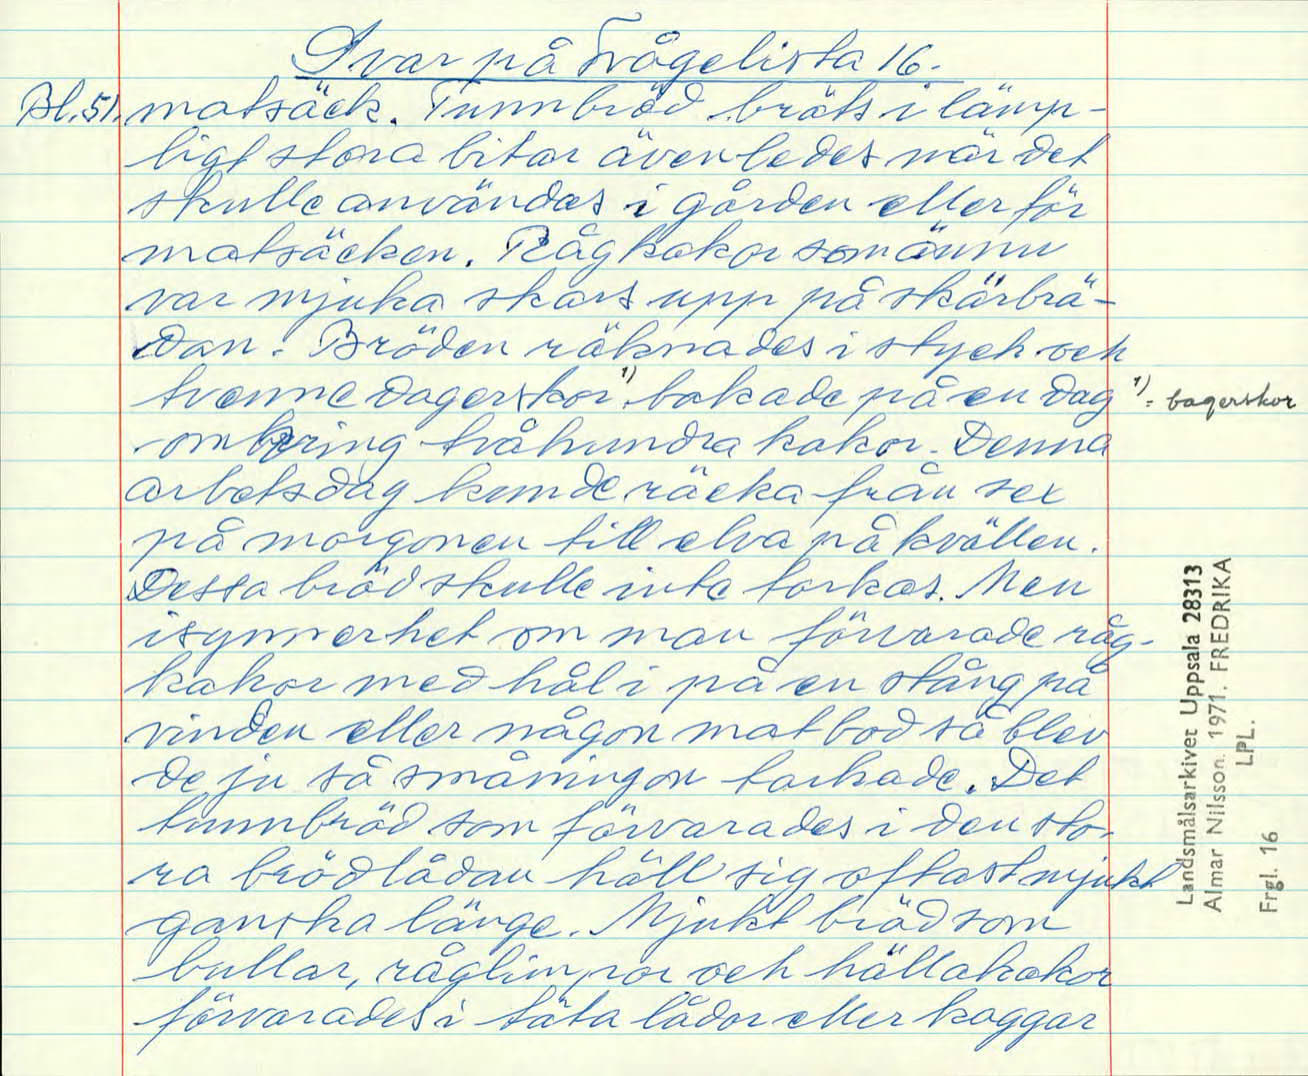 Svar på Frågelista 16.
Bl. 51. matsäck. Tunnbröd bräts i lämp-
ligt stora bitar ävenledes när det
skulle användas i gården eller för
matsäcken. Rågkakor som ännu
var mjuka skars upp på skärbrä-
dan. Bröden räknades i styck och
tvenne dagerskor 1) bakade på en dag 1) = bagerskor
omkring tvåhundra kakor. Denna
arbetsdag kunde räcka från sex
på morgonen till elva på kvällen.
Dessa bröd skulle inte torkas. Men
isynnerhet om man förvarade råg-
kakor med hål i på en stång på
vinden eller någon matbod så blev
de ju så småningom torkade. Det
tunnbröd som förvarades i den sto-
ra brödlådan höll sig oftast mjukt
ganska länge. Mjukt bröd som
bullar, råglimpor och hällakakor
förvarades i täta lådor eller kaggar
Landsmålsarkivet Uppsala 28313
Almar Nilsson. 1971. FREDRIKA
LPL.
Frgl. 16